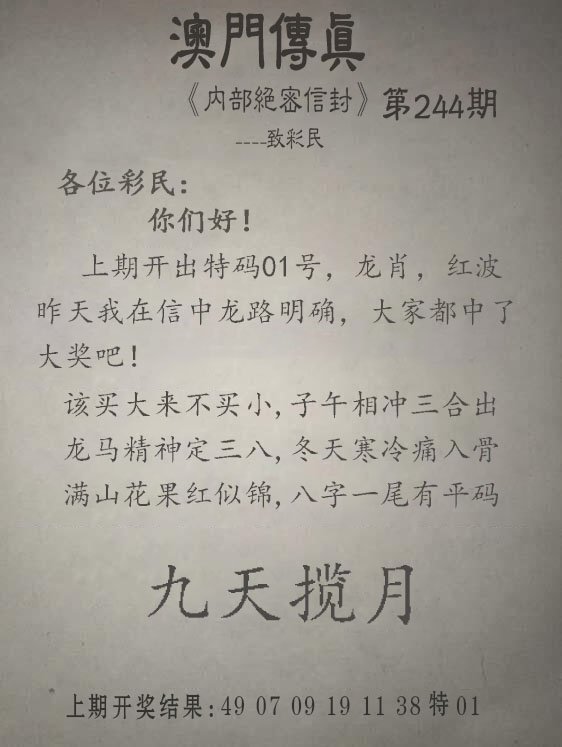 澳門傳眞
《内部絕密信封》第244期
----致彩民
各位彩民：
你们好！
上期开出特码01号，龙肖，红波
昨天我在信中龙路明确，大家都中了
大奖吧！
该买大来不买小,子午相冲三合出
龙马精神定三八,冬天寒冷痛入骨
满山花果红似锦,八字一尾有平码
九天揽月
上期开奖结果:49 07 09 19 11 38 特 01